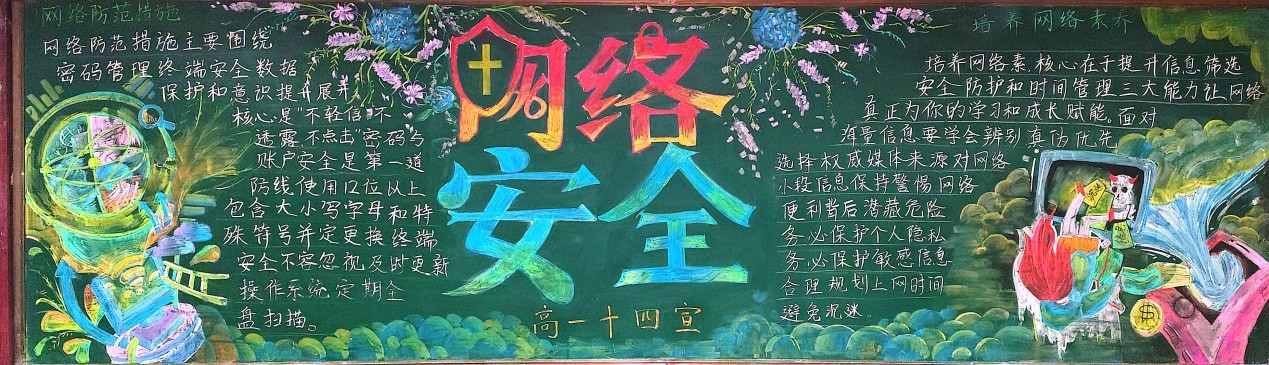 网络防范措施
网络防范措施主要围绕
密码管理终端安全数据
保护和意识提升展开
核心是"不轻信"不
透露、不点击"密码与
账户安全是第一道
防线使用12位以上
包含大小写字母和特
殊符号并定更换终端
安全不容忽视及时更新
操作系统定期全
盘扫描。
网络
安全
高一十四宣
培养网络素养
培养网络素,核心在于提升信息筛选
安全防护和时间管理三大能力让网络
真正为你的学习和成长赋能。面对
海量信息要学会辨别真伪优先
选择权威媒体来源对网络
小段信息保持警惕网络
便利背后潜藏危险
务必保护个人隐私
务必保护敏感信息
合理规划上网时间
避免沉迷。
$